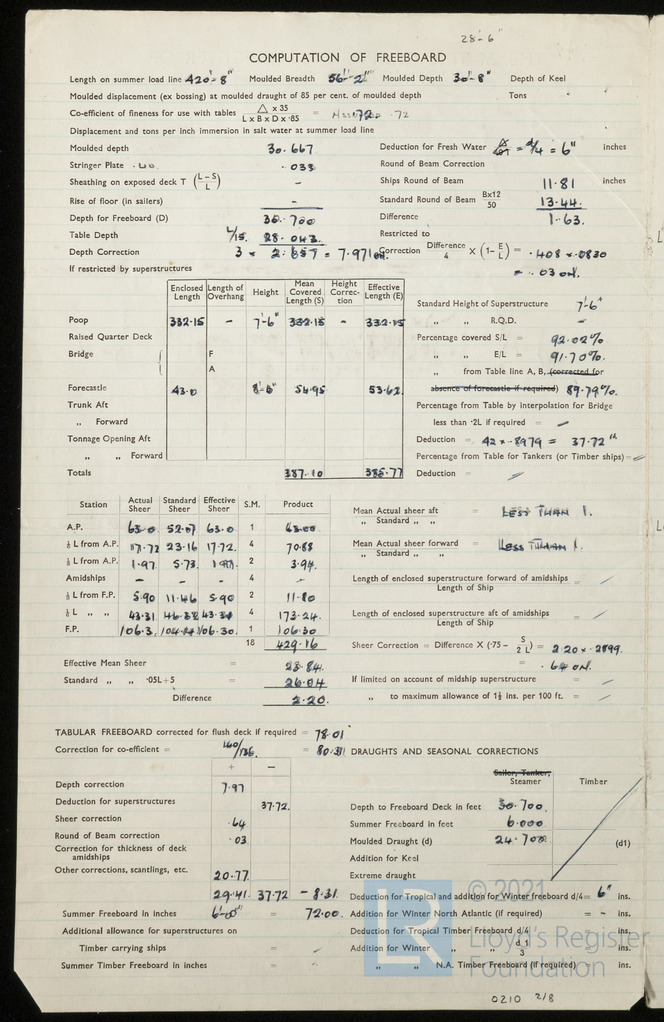 28'-6"
COMPUTATION OF FREEBOARD
Length on summer load line 420'-8" Moulded Breadth 56'-2" Moulded Depth 30'-8" Depth of Keel
Moulded displacement (ex bossing) at moulded draught of 85 per cent. of moulded depth Tons
Co-efficient of fineness for use with tables △ x 35 / L x B x D x ·85 = ·72 ·72
Displacement and tons per inch immersion in salt water at summer load line
Moulded depth 30.667
Stringer Plate .033
Sheathing on exposed deck T (L–S / L) –
Rise of floor (in sailers) –
Depth for Freeboard (D) 30.700
Table Depth L/15. 28.043.
Depth Correction 3 × 2.657 = 7.971 on.
If restricted by superstructures
Deduction for Fresh Water = d/4 = 6" inches
Round of Beam Correction
Ships Round of Beam 11.81 inches
Standard Round of Beam Bx12 / 50 13.44.
Difference 1.63.
Restricted to
Correction Difference / 4 X (1– E / L) = .408 × .0830
= .03 on.
Enclosed Length Length of Overhang Height Mean Covered Length (S) Height Correc- tion Effective Length (E)
Poop 332.15 – 7'-6" 332.15 – 332.15
Raised Quarter Deck
Bridge F
A
Forecastle 43.0 8'-6" 54.95 53.62
Trunk Aft
„ Forward
Tonnage Opening Aft
„ „ Forward
Totals 387.10 385.77
Standard Height of Superstructure 7'-6"
„ „ R.Q.D. –
Percentage covered S/L = 92.02%
„ „ E/L = 91.70%.
„ from Table line A, B, (corrected for
absence of forecastle if required) 89.79%.
Percentage from Table by Interpolation for Bridge
less than ·2L if required =
Deduction = 42 × .8979 = 37.72"
Percentage from Table for Tankers (or Timber ships) =
Deduction =
Station Actual Sheer Standard Sheer Effective Sheer S.M. Product
A.P. 63.0 52.07 63.0 1 63.00
⅙ L from A.P. 17.72 23.16 17.72. 4 70.88
⅓ L from A.P. 1.97 5.73 1.97. 2 3.94.
Amidships – – – 4 –
⅓ L from F.P. 5.90 11.46 5.90 2 11.80
⅙ L „ „ 43.31 46.32 43.31 4 173.24.
F.P. 106.3. 104.14 106.30. 1 106.30
18 429.16
Effective Mean Sheer = 23.84.
Standard „ „ ·05L+5 = 26.04
Difference 2.20.
Mean Actual sheer aft = LESS THAN 1.
„ Standard „ „
Mean Actual sheer forward = LESS THAN 1.
„ Standard „ „
Length of enclosed superstructure forward of amidships =
Length of Ship
Length of enclosed superstructure aft of amidships =
Length of Ship
Sheer Correction = Difference X (·75 – S / 2 L) = 2.20 × .2899.
= .64 on.
If limited on account of midship superstructure =
„ to maximum allowance of 1½ ins. per 100 ft. =
TABULAR FREEBOARD corrected for flush deck if required = 78.01
Correction for co-efficient = 140/136. = 80.31
+ –
Depth correction 7.97
Deduction for superstructures 37.72.
Sheer correction .64
Round of Beam correction .03
Correction for thickness of deck
amidships
Other corrections, scantlings, etc. 20.77
29.41 37.72 – 8.31.
Summer Freeboard in inches 6'-00" = 72.00.
Additional allowance for superstructures on
Timber carrying ships =
Summer Timber Freeboard in inches =
DRAUGHTS AND SEASONAL CORRECTIONS
Sailer, Tanker,
Steamer Timber
Depth to Freeboard Deck in feet 30.700.
Summer Freeboard in feet 6.000
Moulded Draught (d) 24.700 (d1)
Addition for Keel
Extreme draught
Deduction for Tropical and addition for Winter freeboard d/4= 6" ins.
Addition for Winter North Atlantic (if required) = – ins.
Deduction for Tropical Timber Freeboard d/4 ins.
Addition for Winter „ „ d 1 / 3 ins.
„ „ N.A. Timber Freeboard (if required) ins.
LR
© 2021
Lloyd's Register
Foundation
0210 2/8